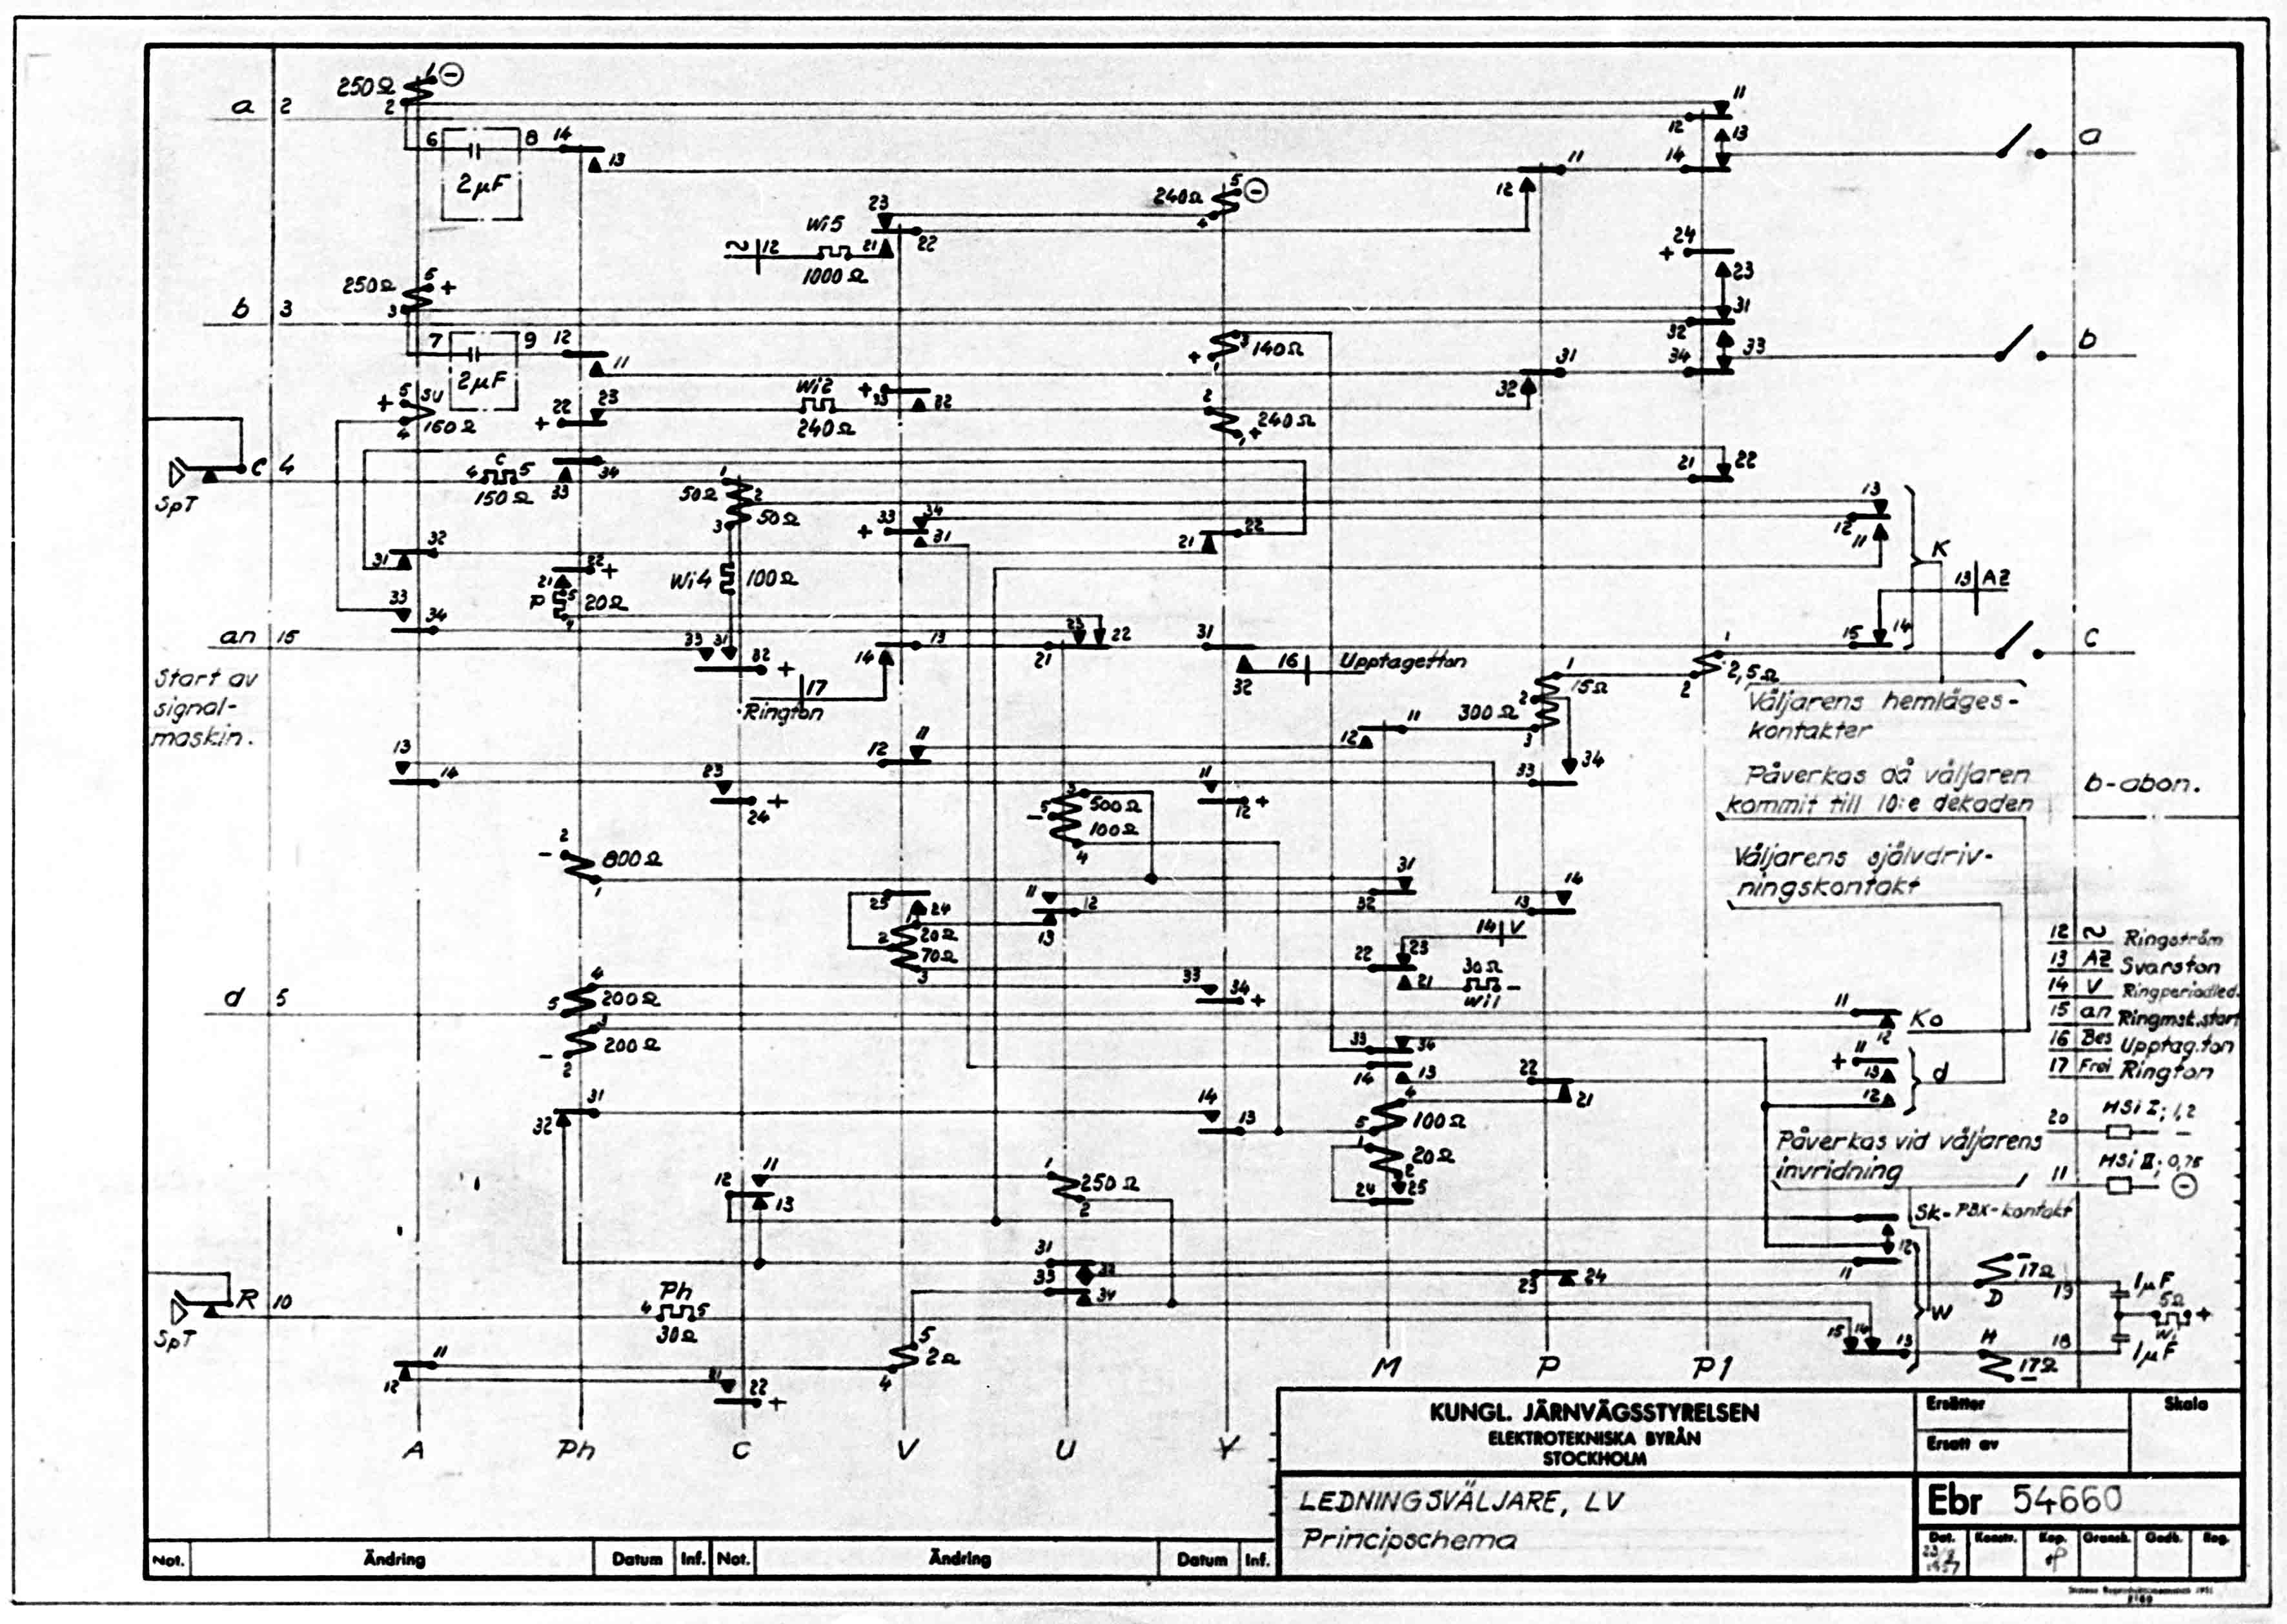 250Ω
1
⊖
2
a 2
6
8
14
13
2µF
11
12
13
14
a
11
12
240Ω
5
⊖
4
23
Wi5
~
12
21
22
1000Ω
24
+
23
250Ω
+
b 3
3
31
32
33
34
b
7
9
12
11
2µF
140Ω
+
31
32
Wi2
240Ω
+
32
5
+
4
150Ω
22
23
+
2
240Ω
+
SpT
C 4
4
C
5
150Ω
33
34
1
50Ω
2
50Ω
3
21
22
33
34
+
31
22
21
13
12
11
K
13
AZ
31
32
21
22
+
P
5
20Ω
Wi4
100Ω
33
34
an 15
33
31
32
+
14
13
23
22
21
31
32
16
Upptagetton
15
14
C
17
Rington
Start av
signal-
maskin.
1
15Ω
2
300Ω
3
1
2,5Ω
2
11
12
34
33
Väljarens hemläges-
kontakter
13
14
23
24
+
12
11
11
12
+
Påverkas då väljaren
kommit till 10:e dekaden
b-abon.
3
500Ω
5
-
100Ω
4
2
-
800Ω
1
Väljarens självdriv-
ningskontakt
25
24
1
20Ω
2
70Ω
3
11
12
13
31
32
14
13
14
V
22
23
21
30Ω
Wi1
-
12 ~ Ringström
13 AZ Svarston
14 V Ringperiodled.
15 an Ringmsk.start
16 Bes Upptag.ton
17 Frei Rington
d 5
4
200Ω
5
3
200Ω
-
2
33
34
+
11
12
Ko
33
34
14
13
22
21
+
11
13
12
d
32
31
14
13
4
100Ω
5
1
20Ω
2
24
25
20
HSi I; 1,2
-
Påverkas vid väljarens
invridning
11
HSi II; 0,75
⊖
12
11
13
1
250Ω
2
Sk-PBX-kontakt
12
11
31
33
32
34
23
24
-
17Ω
D
19
1µF
5Ω
+
Wi
1µF
18
H
17Ω
-
W
15
14
13
SpT
R 10
Ph
4
5
30Ω
5
2Ω
4
11
12
21
22
+
A
Ph
C
V
U
Y
M
P
P1
KUNGL. JÄRNVÄGSSTYRELSEN
ELEKTROTEKNISKA BYRÅN
STOCKHOLM
Ersätter
Skala
Ersatt av
LEDNINGSVÄLJARE, LV
Principschema
Ebr 54660
Dat. Konstr. Kop. Gransk. Godk. Reg.
Not. Ändring Datum Inf. Not. Ändring Datum Inf.